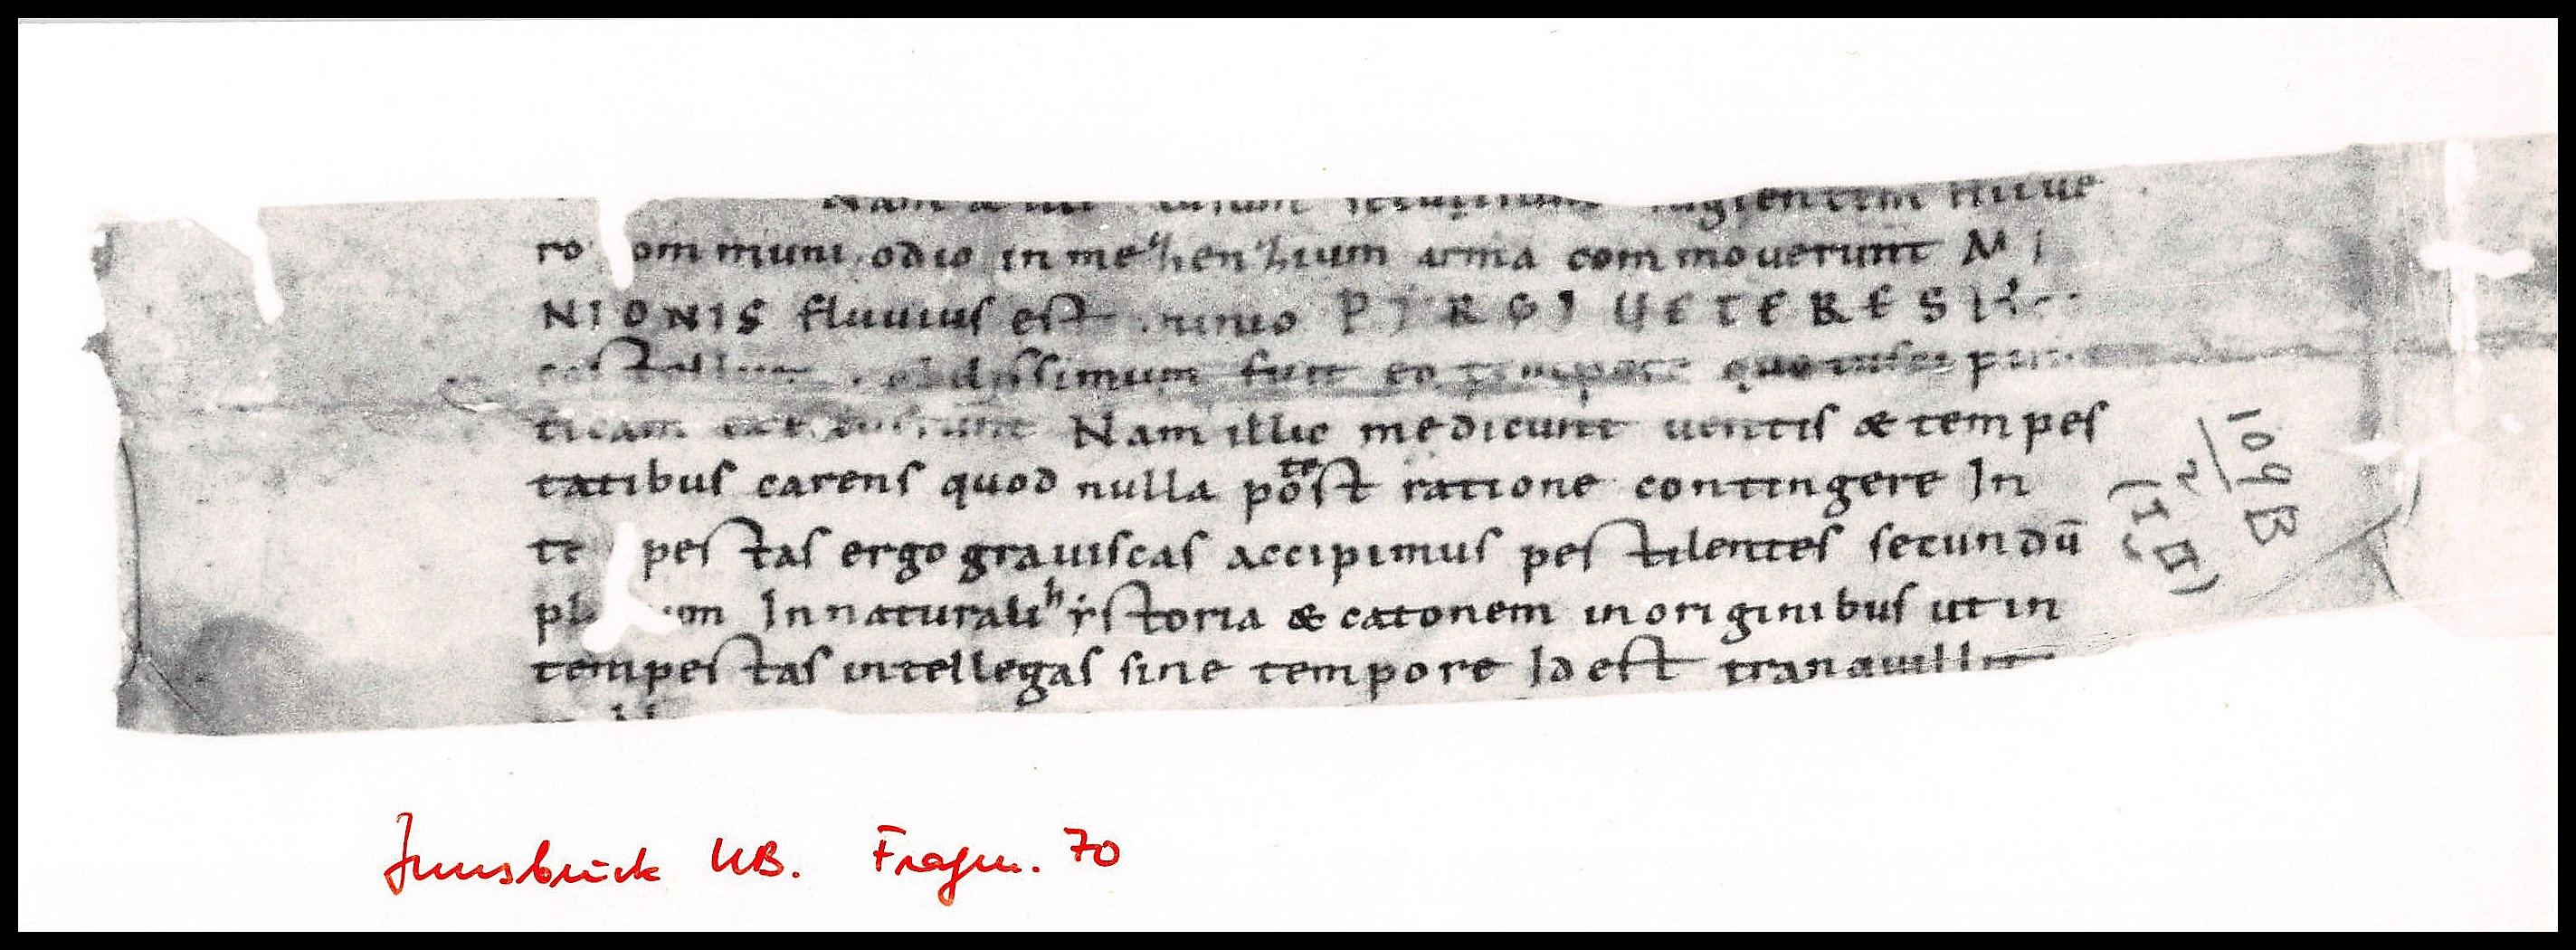 Nam & illi fugientem hii ue
ro ommuni odio in mezhenzhium arma commouerunt MI
NIONIS fluuius est minio PYRGI UETERES hi
castellum nobilissimum fuit eo tempore quo tusci pira
ticam exercuerunt Nam illic medicunt uentis & tempes
tatibus carens quod nulla potest ratione contingere In
te pestas ergo grauiscas accipimus pestilentes secundū
pl um In naturali hystoria & catonem in originibus ut in
tempestas intellegas sine tempore Id est tranquillit
109 B
2
(I,□)
Innsbruck UB. Fragm. 70